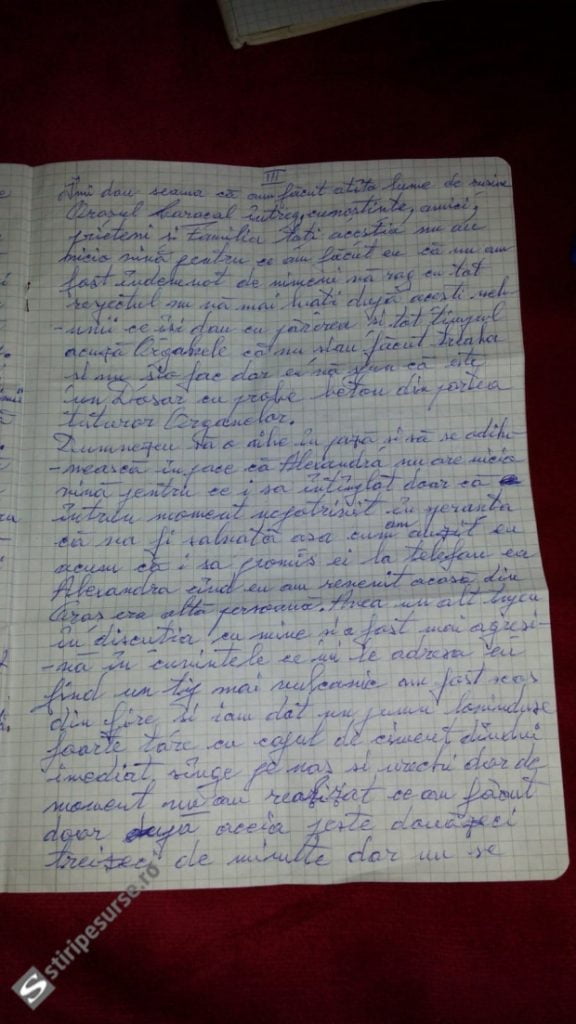 III
Îmi dau seama că am făcut atîta lume de rușine
Orașul Caracal întreg, cunoștințe, amici,
prieteni și Familia toți aceștia nu au
nicio vină pentru ce am făcut eu că nu am
fost îndemnat de nimeni vă rog cu tot
respectul nu vă mai luați după acești neb-
-unii ce își dau cu părerea și tot timpul
acuză Organele că nu șiau făcut treaba
și nu șio fac dar eu vă spun că este
un Dosar cu probe beton din partea
tuturor Organelor.
Dumnezeu să o aibe în pază și să se odih-
-nească în pace că Alexandra nu are nicio
vină pentru ce i sa întîmplat doar ca
întrun moment nepotrivit în speranta
că va fi salvată așa cum am auzit eu
acum că i sa promis ei la telefon ea
Alexandra cînd eu am revenit acasă din
Oraș era altă persoană. Avea un alt
în discuția cu mine și a fost mai agresi-
-vă în cuvintele ce mi le adresa eu
fiind un tip mai vulcanic am fost scos
din fire și iam dat un pumn lovinduse
foarte tare cu capul de ciment dîndui
imediat sînge pe nas și urechi dar de
moment nu am realizat ce am făcut
doar după aceia peste douăzeci
treizeci de minute dar nu se
stiripesurse.ro